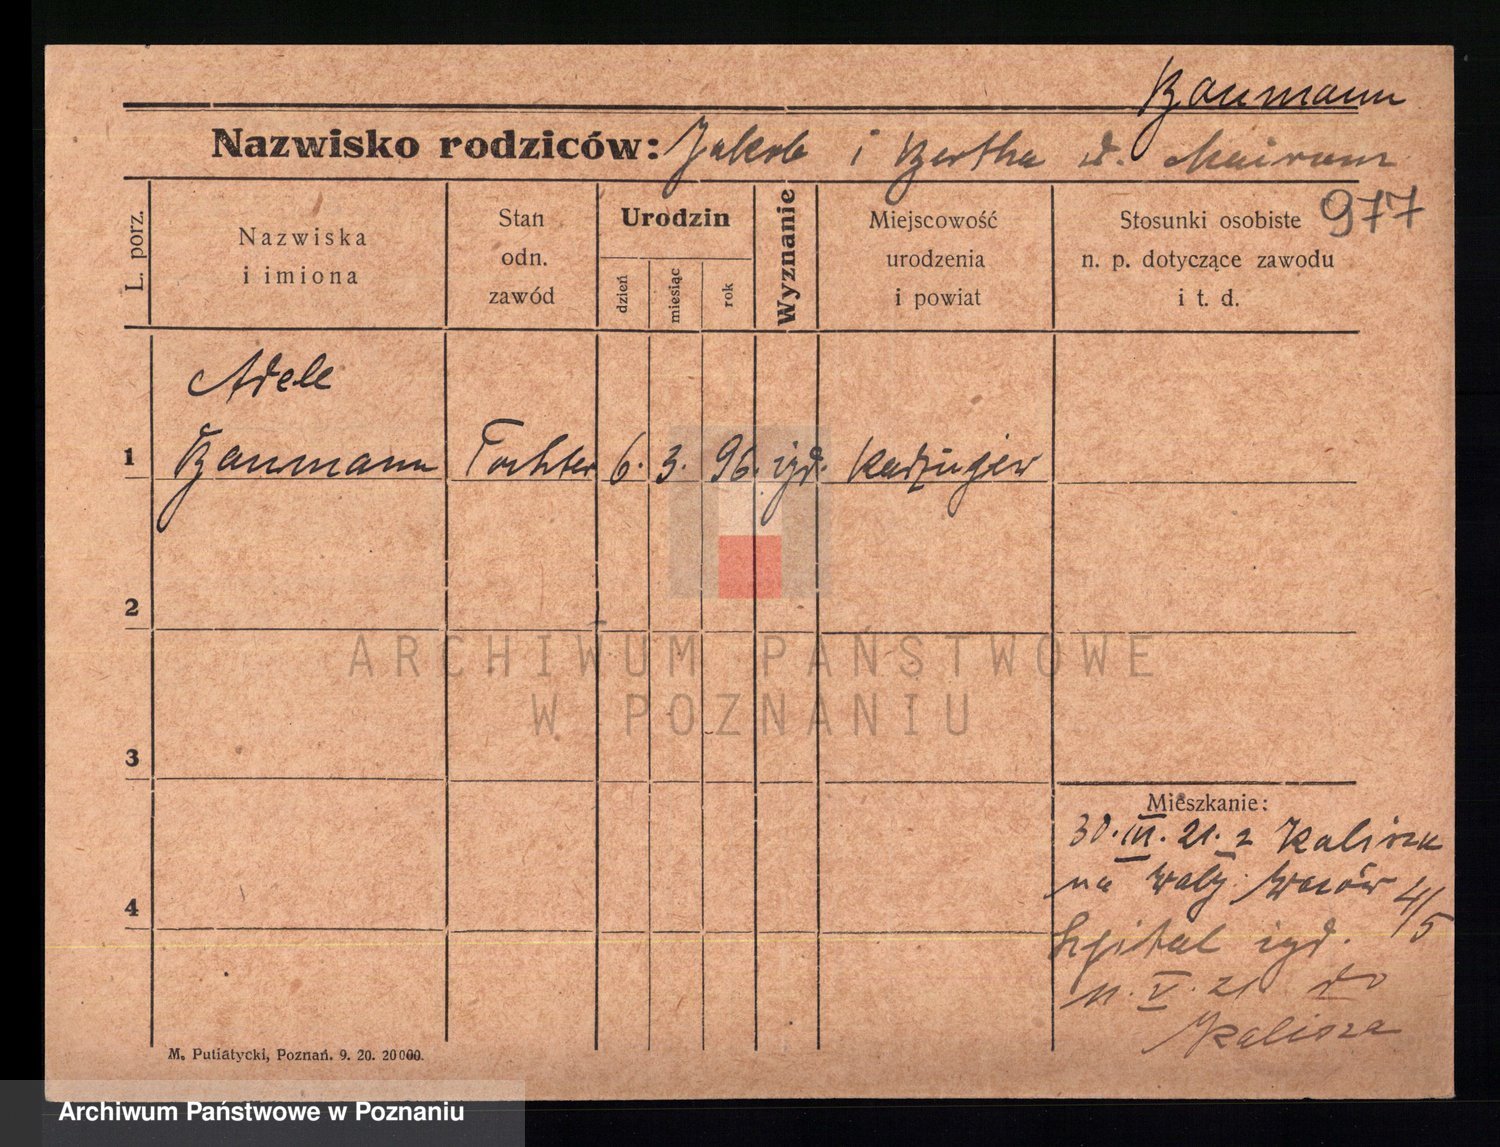 Baumann
Nazwisko rodziców: Jakob i Bertha d.
977
L. porz.
Nazwiska
i imiona
Stan
odn.
zawód
Urodzin
dzień
miesiąc
rok
Wyznanie
Miejscowość
urodzenia
i powiat
Stosunki osobiste
n. p. dotyczące zawodu
i t. d.
Adele
1 Baumann Tochter 6. 3. 96. izr.
2
3
4
Mieszkanie:
30. III. 21. z Kalisza
na 4/5
Szpital izr.
11. V. 21 do
Kalisza
M. Putiatycki, Poznań. 9. 20. 20000.
ARCHIWUM PAŃSTWOWE
W POZNANIU
Archiwum Państwowe w Poznaniu